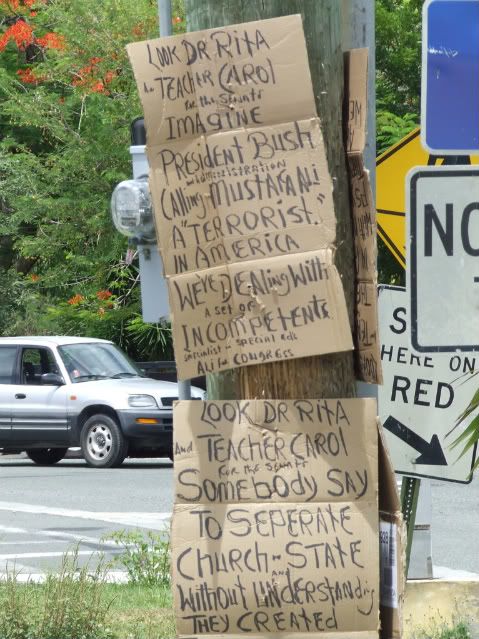 LOOK DR RITA
TEACHER CAROL
for the SENATE
IMAGINE
PRESIDENT BUSH
ADMINISTRATION
CALLING MUSTAFA ALI
A "TERRORIST."
IN AMERICA
WE'RE DEALING WITH
A SET OF
INCOMPETENTS.
specialist in special eds
ALI for CONGRESS
LOOK DR RITA
And TEACHER CAROL
FOR the SENATE
SOMEBODY SAY
TO SEPERATE
CHURCH STATE
AND
WITHOUT UNDERSTANDING
THEY CREATED
NO
HERE ON
RED